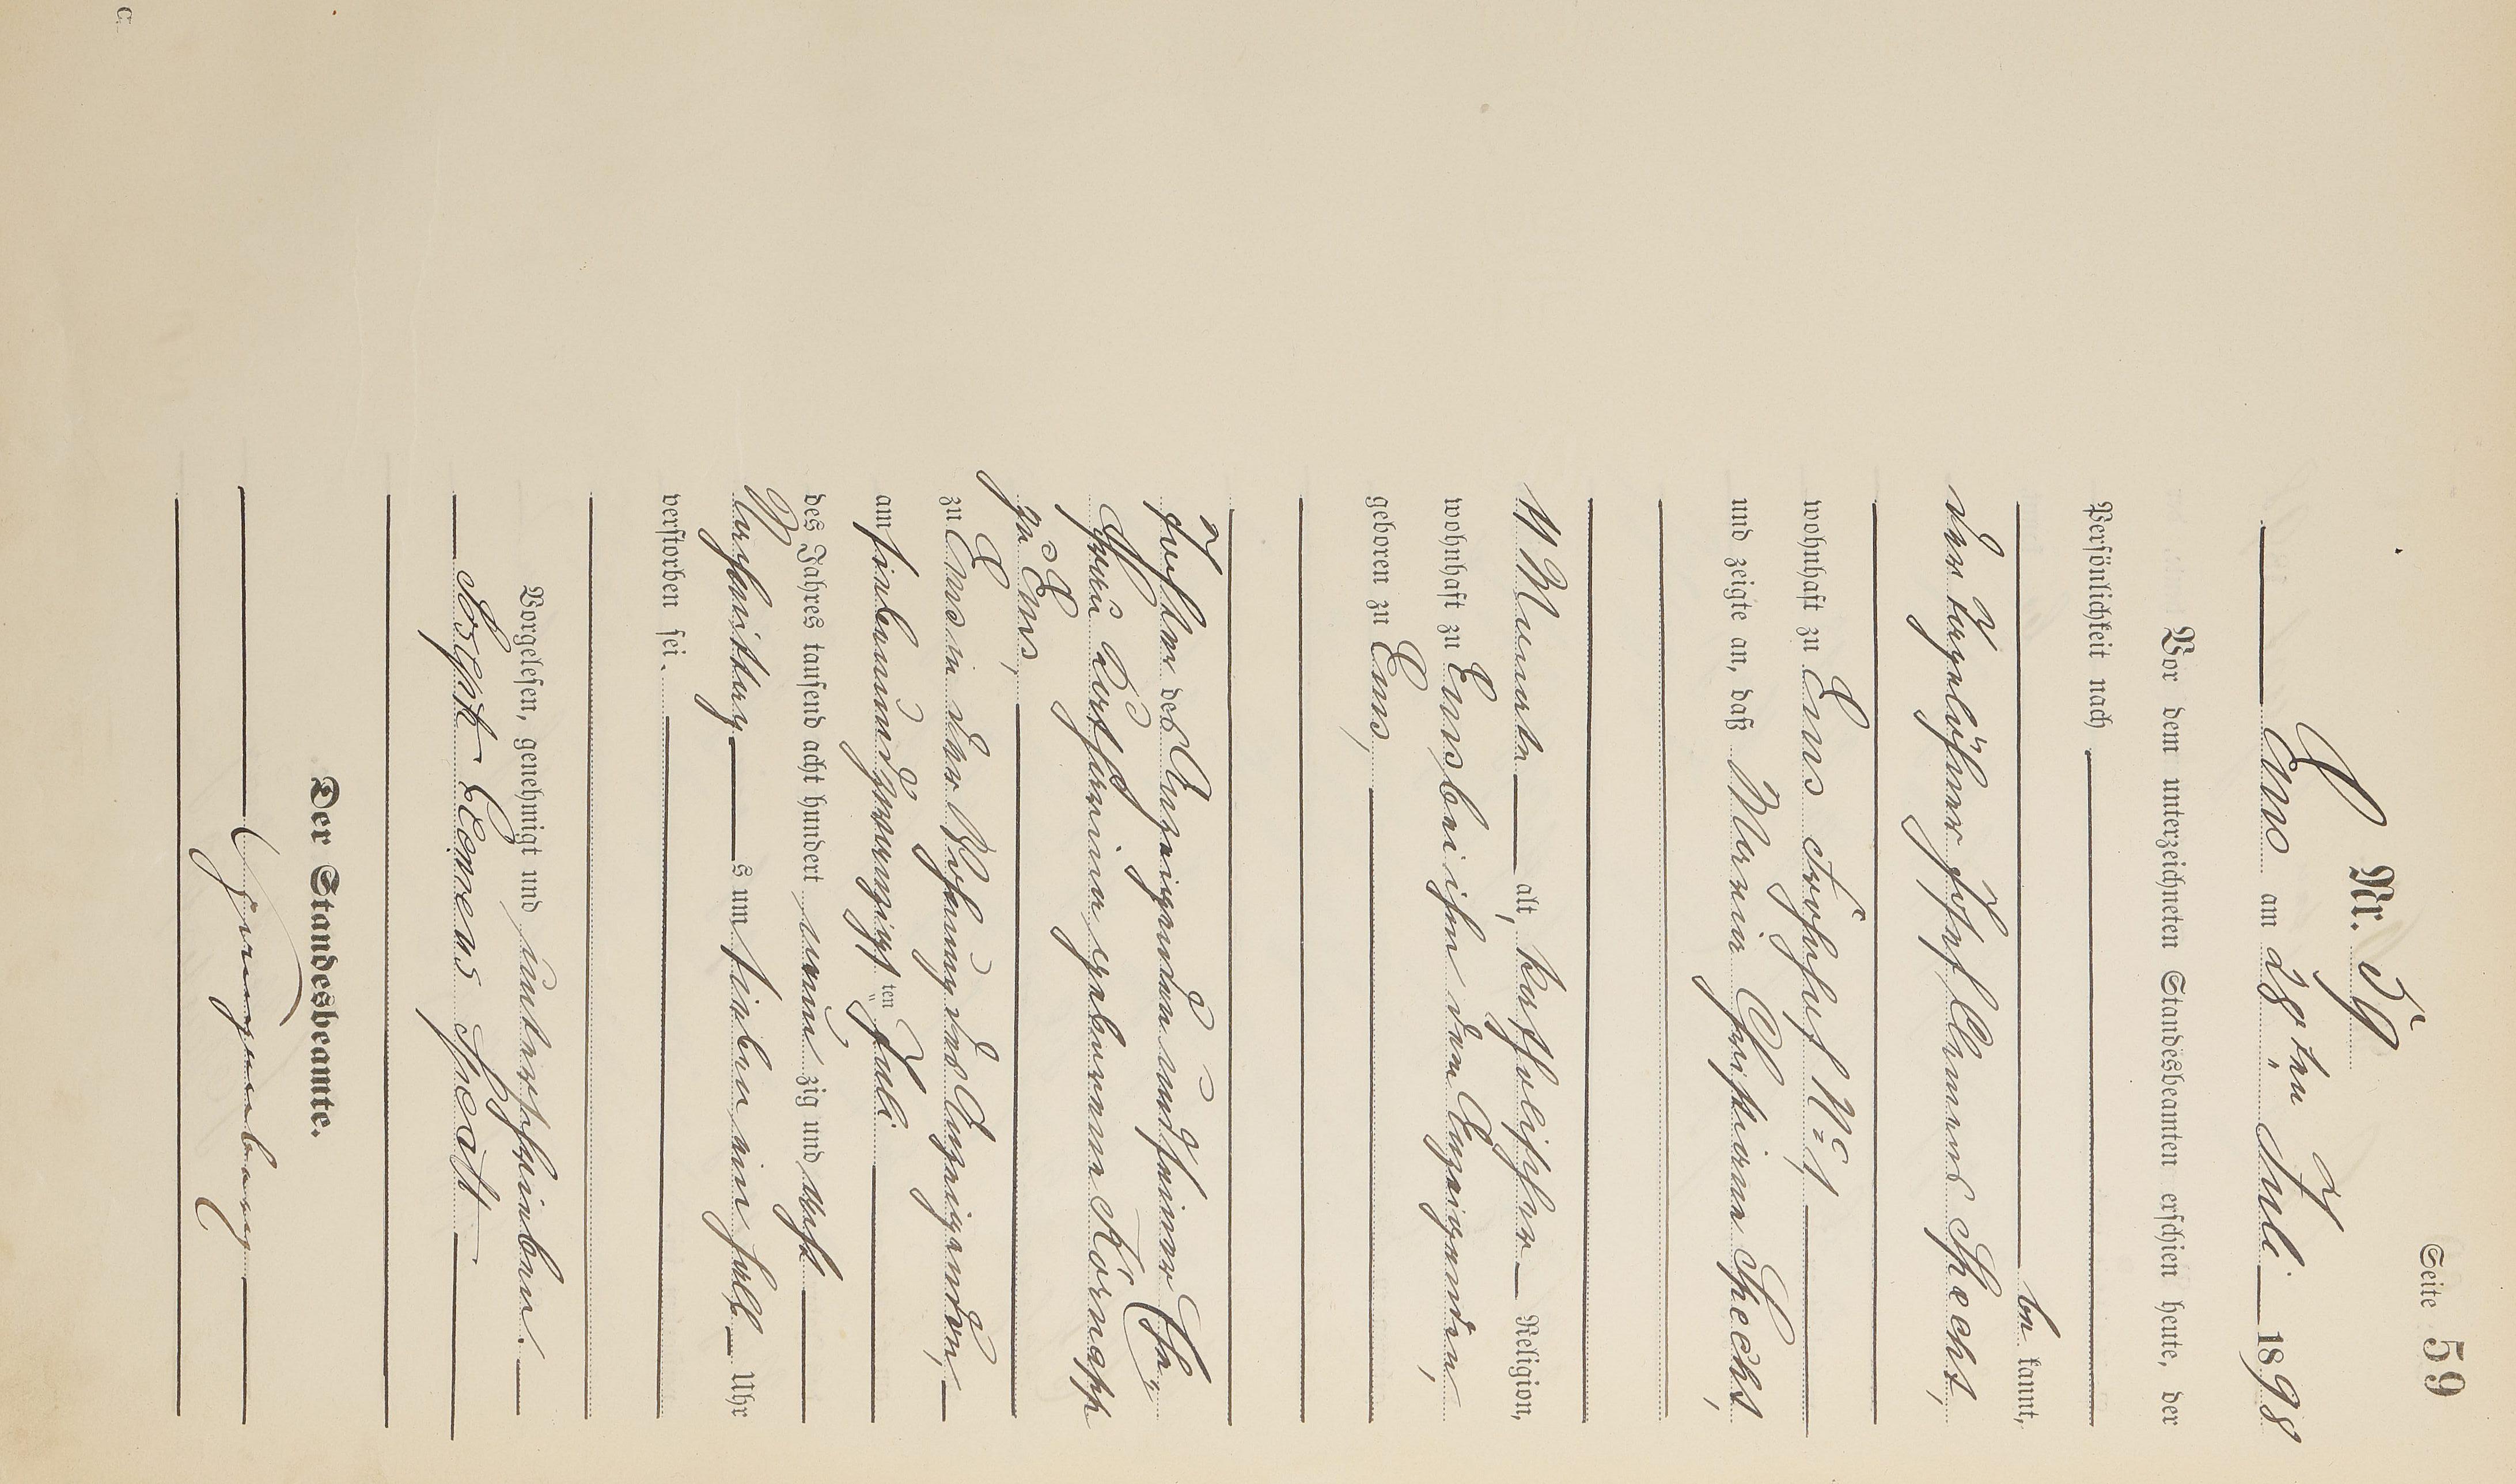 Seite 59
Nr. 59
Ems am 28ten Juli 1898
Vor dem unterzeichneten Standesbeamten erschien heute, der
Persönlichkeit nach
be kannt,
der Tagelöhner Josef Clemens Specht,
wohnhaft zu Ems No 1
und zeigte an, daß Maria Christiane Specht,
11 Monate alt, katholischer Religion,
wohnhaft zu Ems bei ihm dem Anzeigenden,
geboren zu Ems,
Tochter des Anzeigenden und seiner Ehe
frau Katharina geborenen Kornapp
zu Ems,
zu Ems in der Wohnung des Anzeigenden,
am siebenundzwanzigsten Juli
des Jahres tausend acht hundert neun zig und acht
Nachmittags um sieben ein halb Uhr
verstorben sei.
Vorgelesen, genehmigt und unterschrieben.
Joseph Clemens Specht
Der Standesbeamte.
c